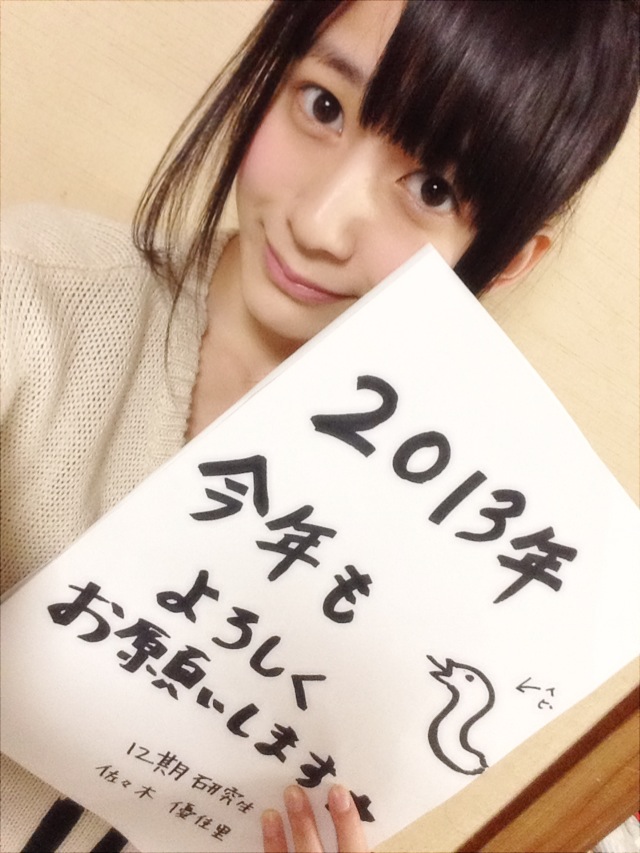 2013年
今年も
よろしく
お願いします☆
ヘビ
12期研究生
佐々木 優佳里